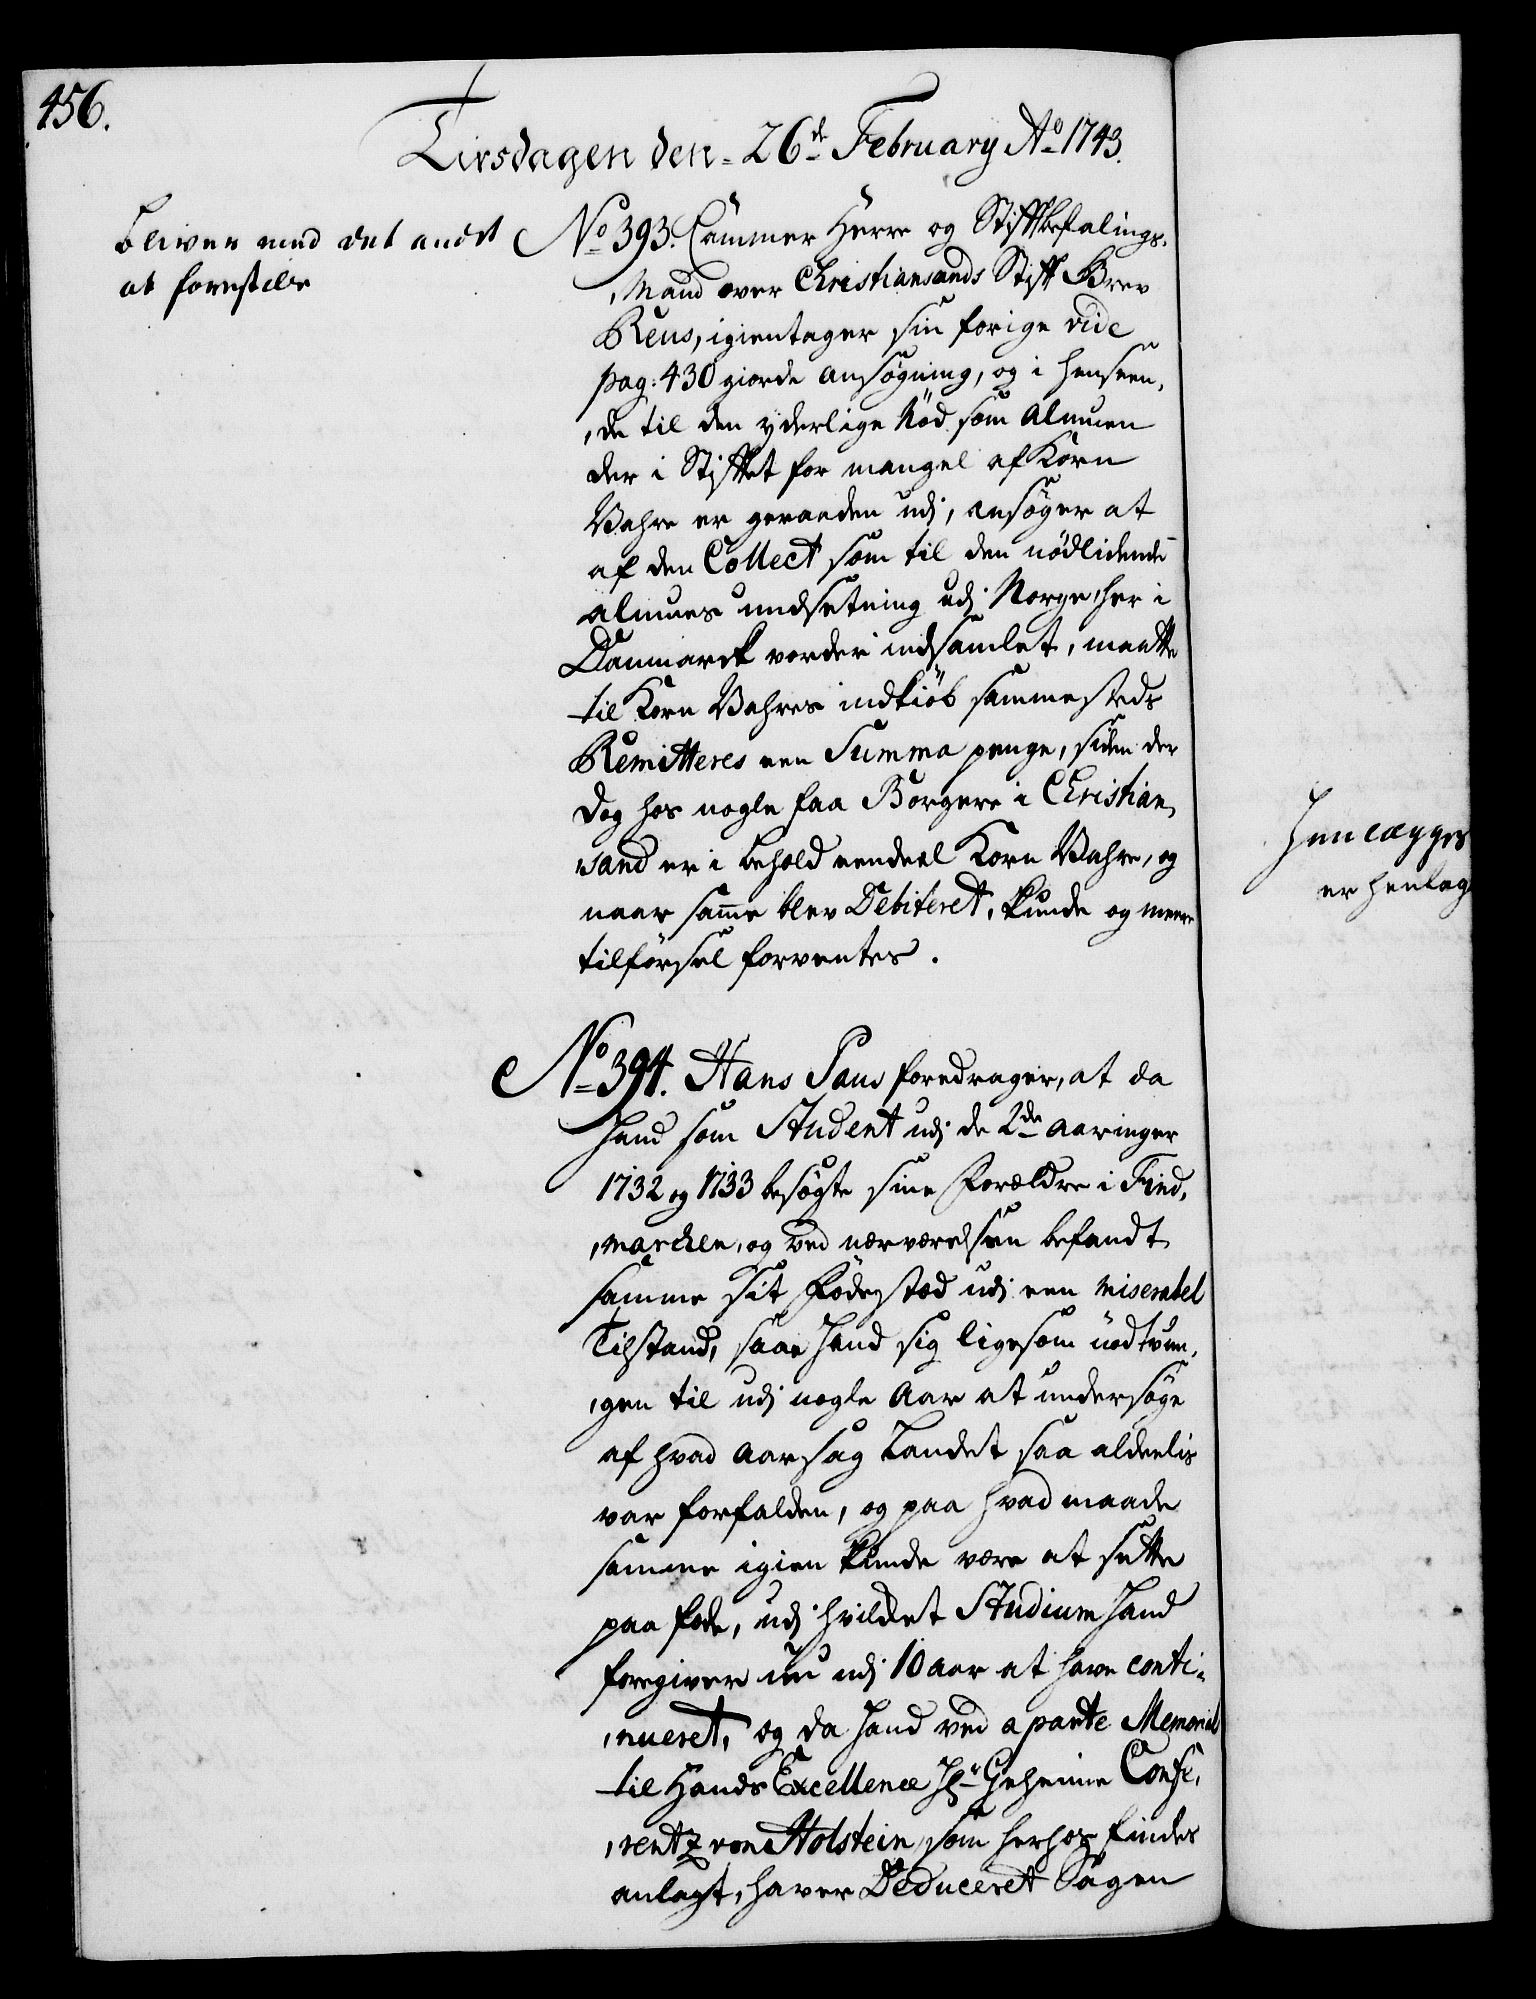 456.
Tirsdagen den 26de February Ao 1743.
bliver med det andet
at forestille
No 393. Cammer Herre og Stiftbefalings-
Mand over Christiansands Stift Brev
Reus, igientager sin forige vide
pag: 430 giorde ansøgning, og i henseen,
,de til den yderlige Nöd som Almuen
der i Stiftet for mangel af Korn
Vahre er geraaden udj, ansøger at
af den Collect som til den nödlidende
almues undsetning udj Norge, her i
Danmarck vorder indsamlet, maatte
til Korn Vahres indkiöb sammesteds
Remitteres een Summa penge, siden der
dog hos nogle faa Borgere i Christian,
sand er i behold eendeel Korn Vahre, og
naar samme blev Debiteret, kunde og meere
tilførsel forventes.
No 394. Hans Paus foredrager, at da
hand som Student udj de 2de aaringer
1732 og 1733 besøgte sine Forældre i Find,
,marcken, og ved nærværelsen befandt
samme sit Födestæd udj een miserabel
Tilstand, saae hand sig ligesom nödtvun,
,gen til udj nogle Aar at undersøge
af hvad aarsag Landet saa aldeelis
var forfalden, og paa hvad maade
samme igien kunde være at sette
paa fode, udj hvilcket Studium hand
foregiver nu udj 10 aar at have conti-
,nueret, og da hand ved a parte Memorial
til Hands Excellence Hr Geheime Confe,
,rentz von Holstein, som herhos findes
anlagt, haver Deduceret Sagen
Henlægges
er henlag